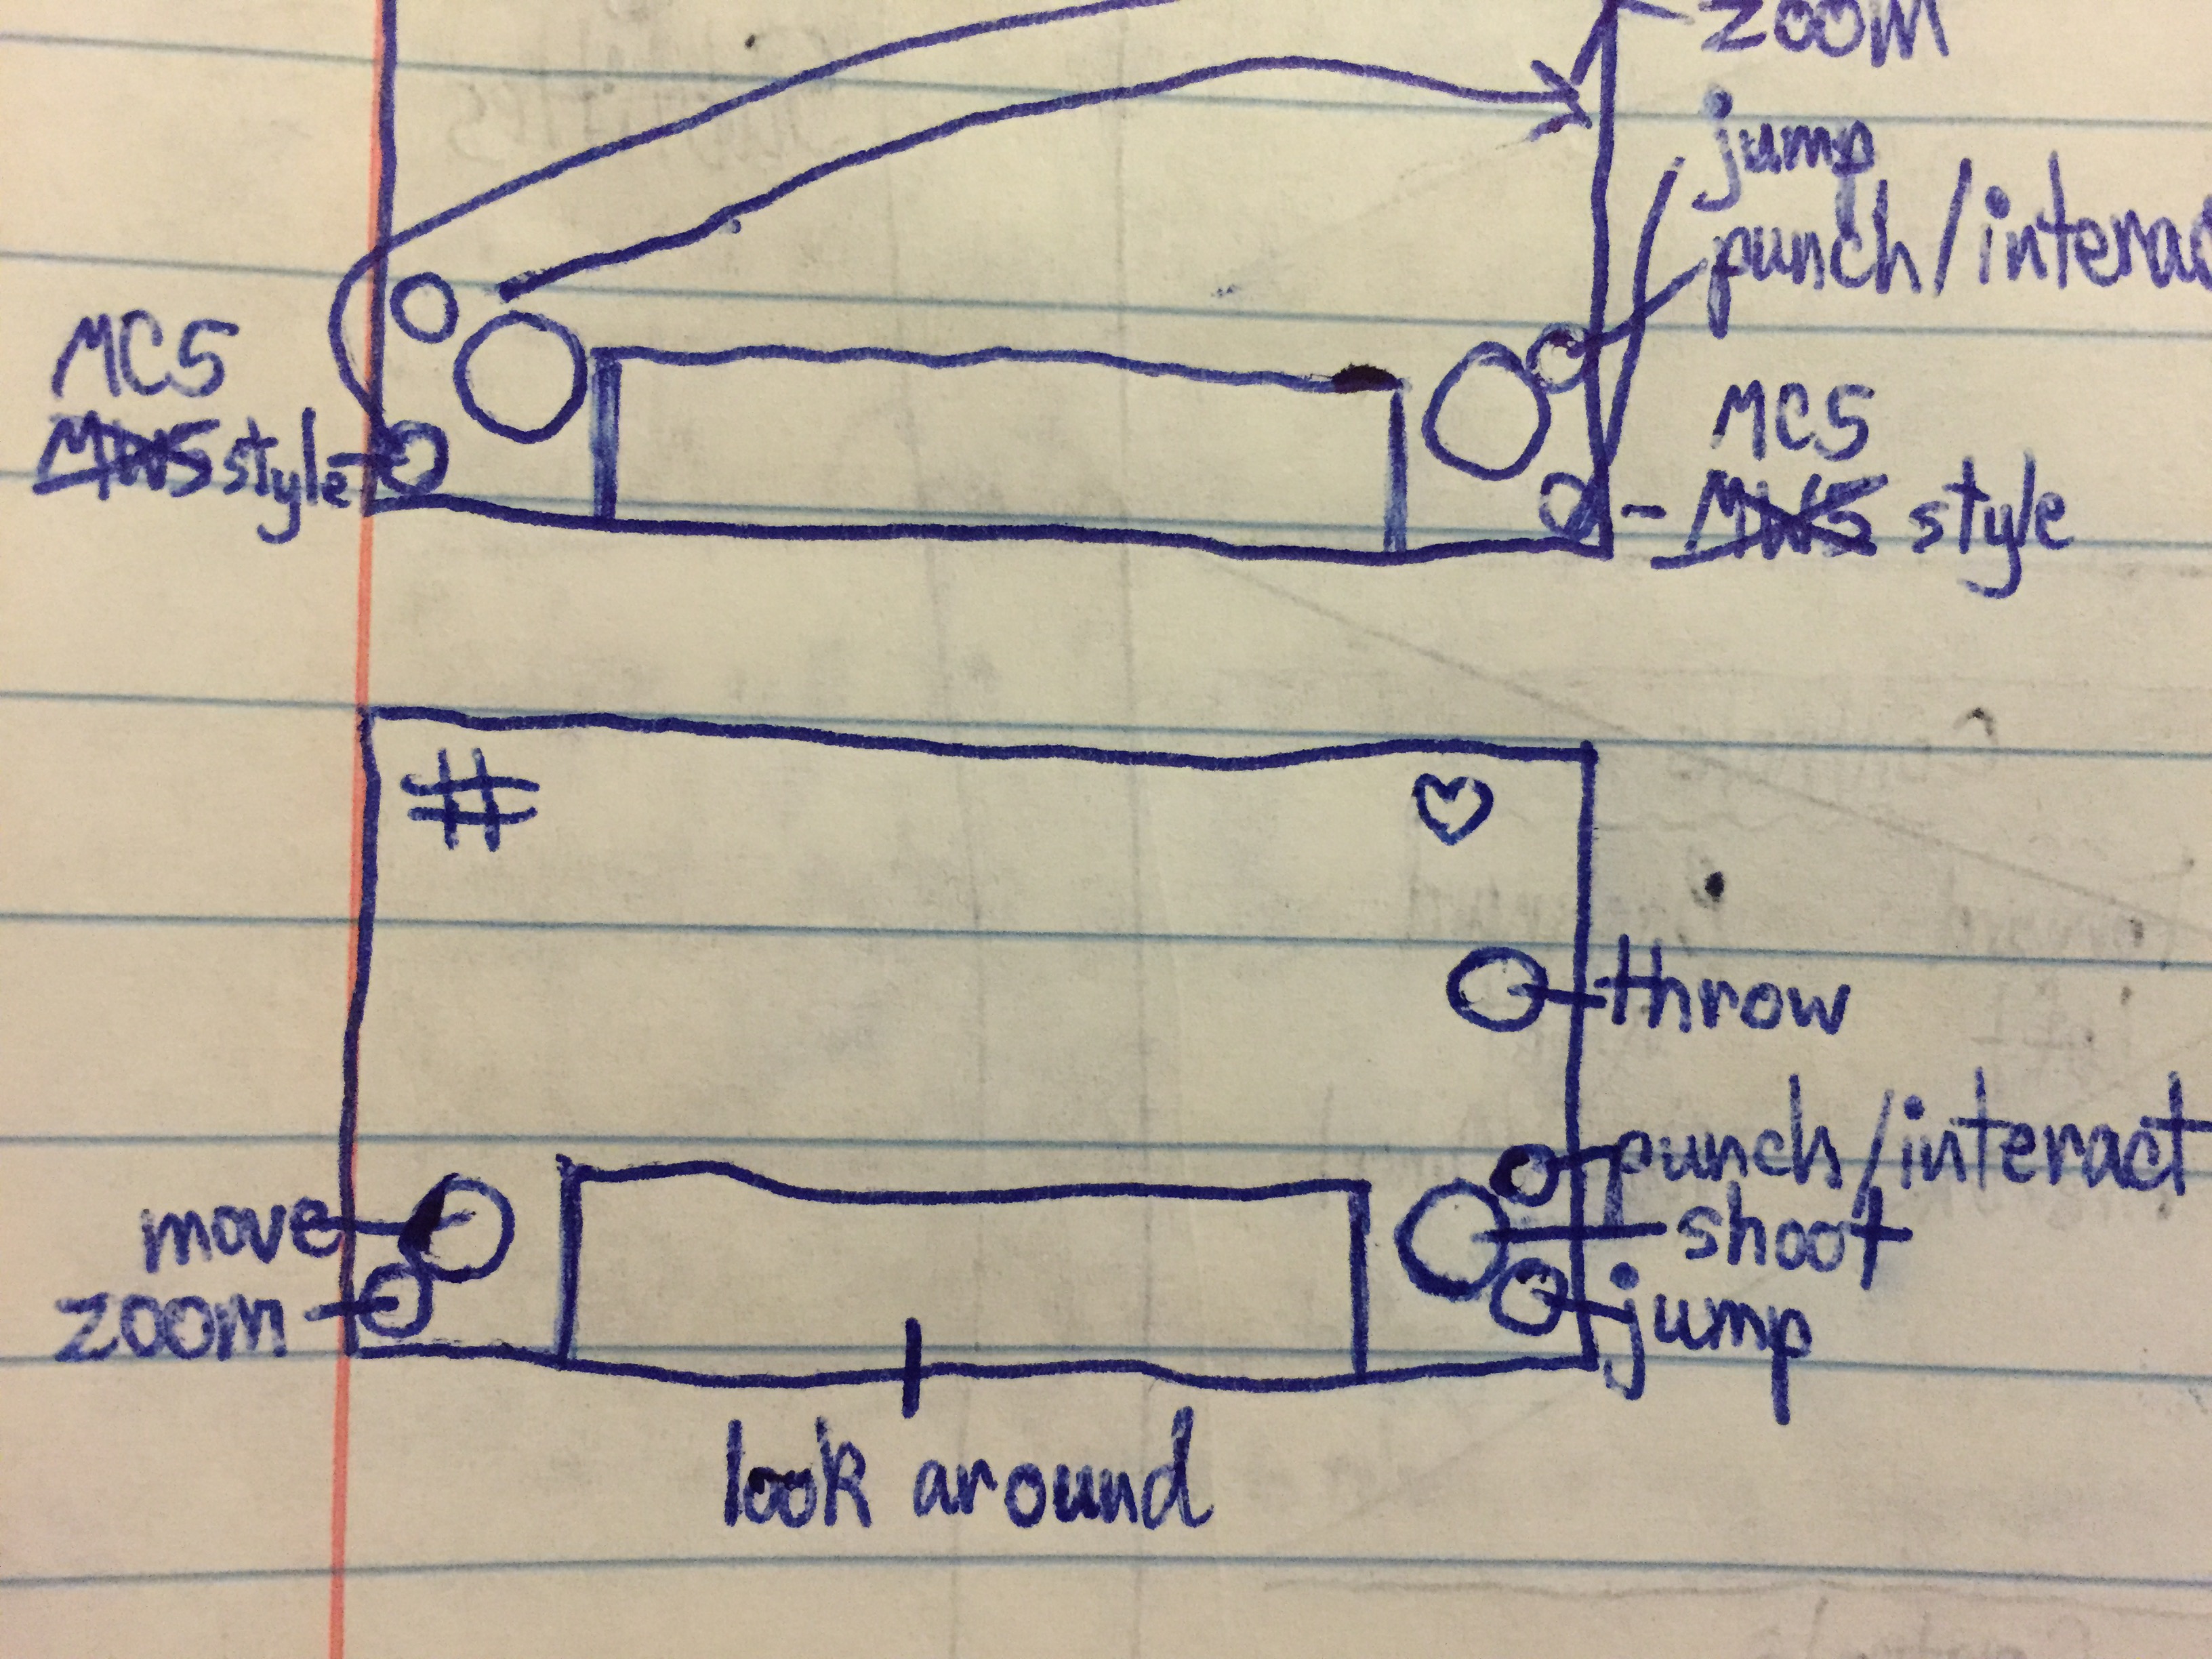 zoom
jump
punch/interac
MC5
MW5 style
MC5
MW5 style
#
throw
punch/interact
move
shoot
zoom
jump
look around